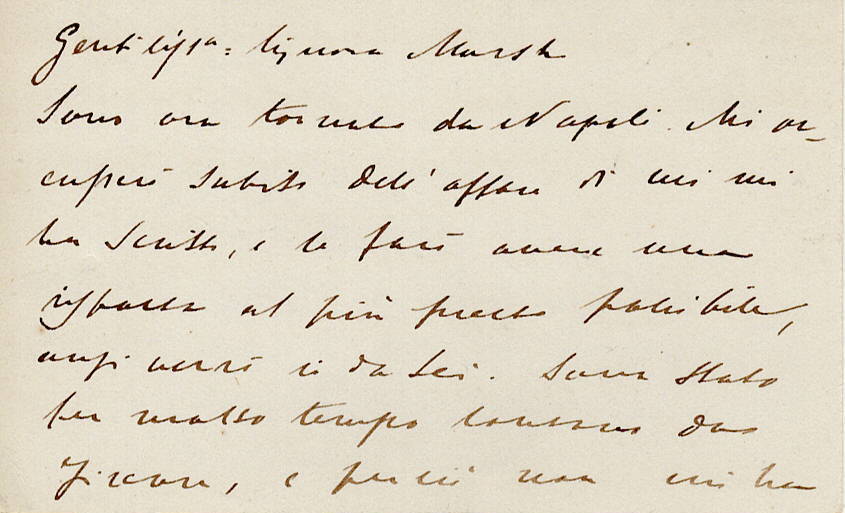 Gentilissa. Signora Marsh
Sono ora tornato da Napoli. Mi oc-
cuperò subito dell'affare di cui mi
ha scritto, e le farò avere una
risposta al più presto possibile,
anzi verrò io da Lei. Sono stato
per molto tempo lontano da
Firenze, e perciò non mi ha